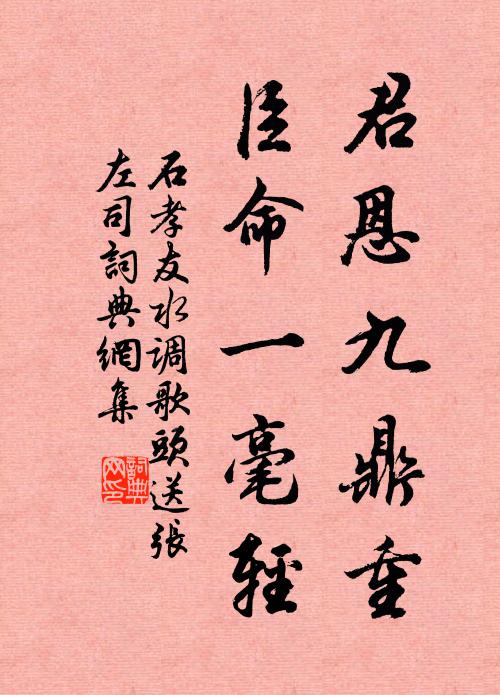 君恩九鼎重
臣命一毫輕
石孝友水调歌頭送張
左司詞典網集
詞典网印